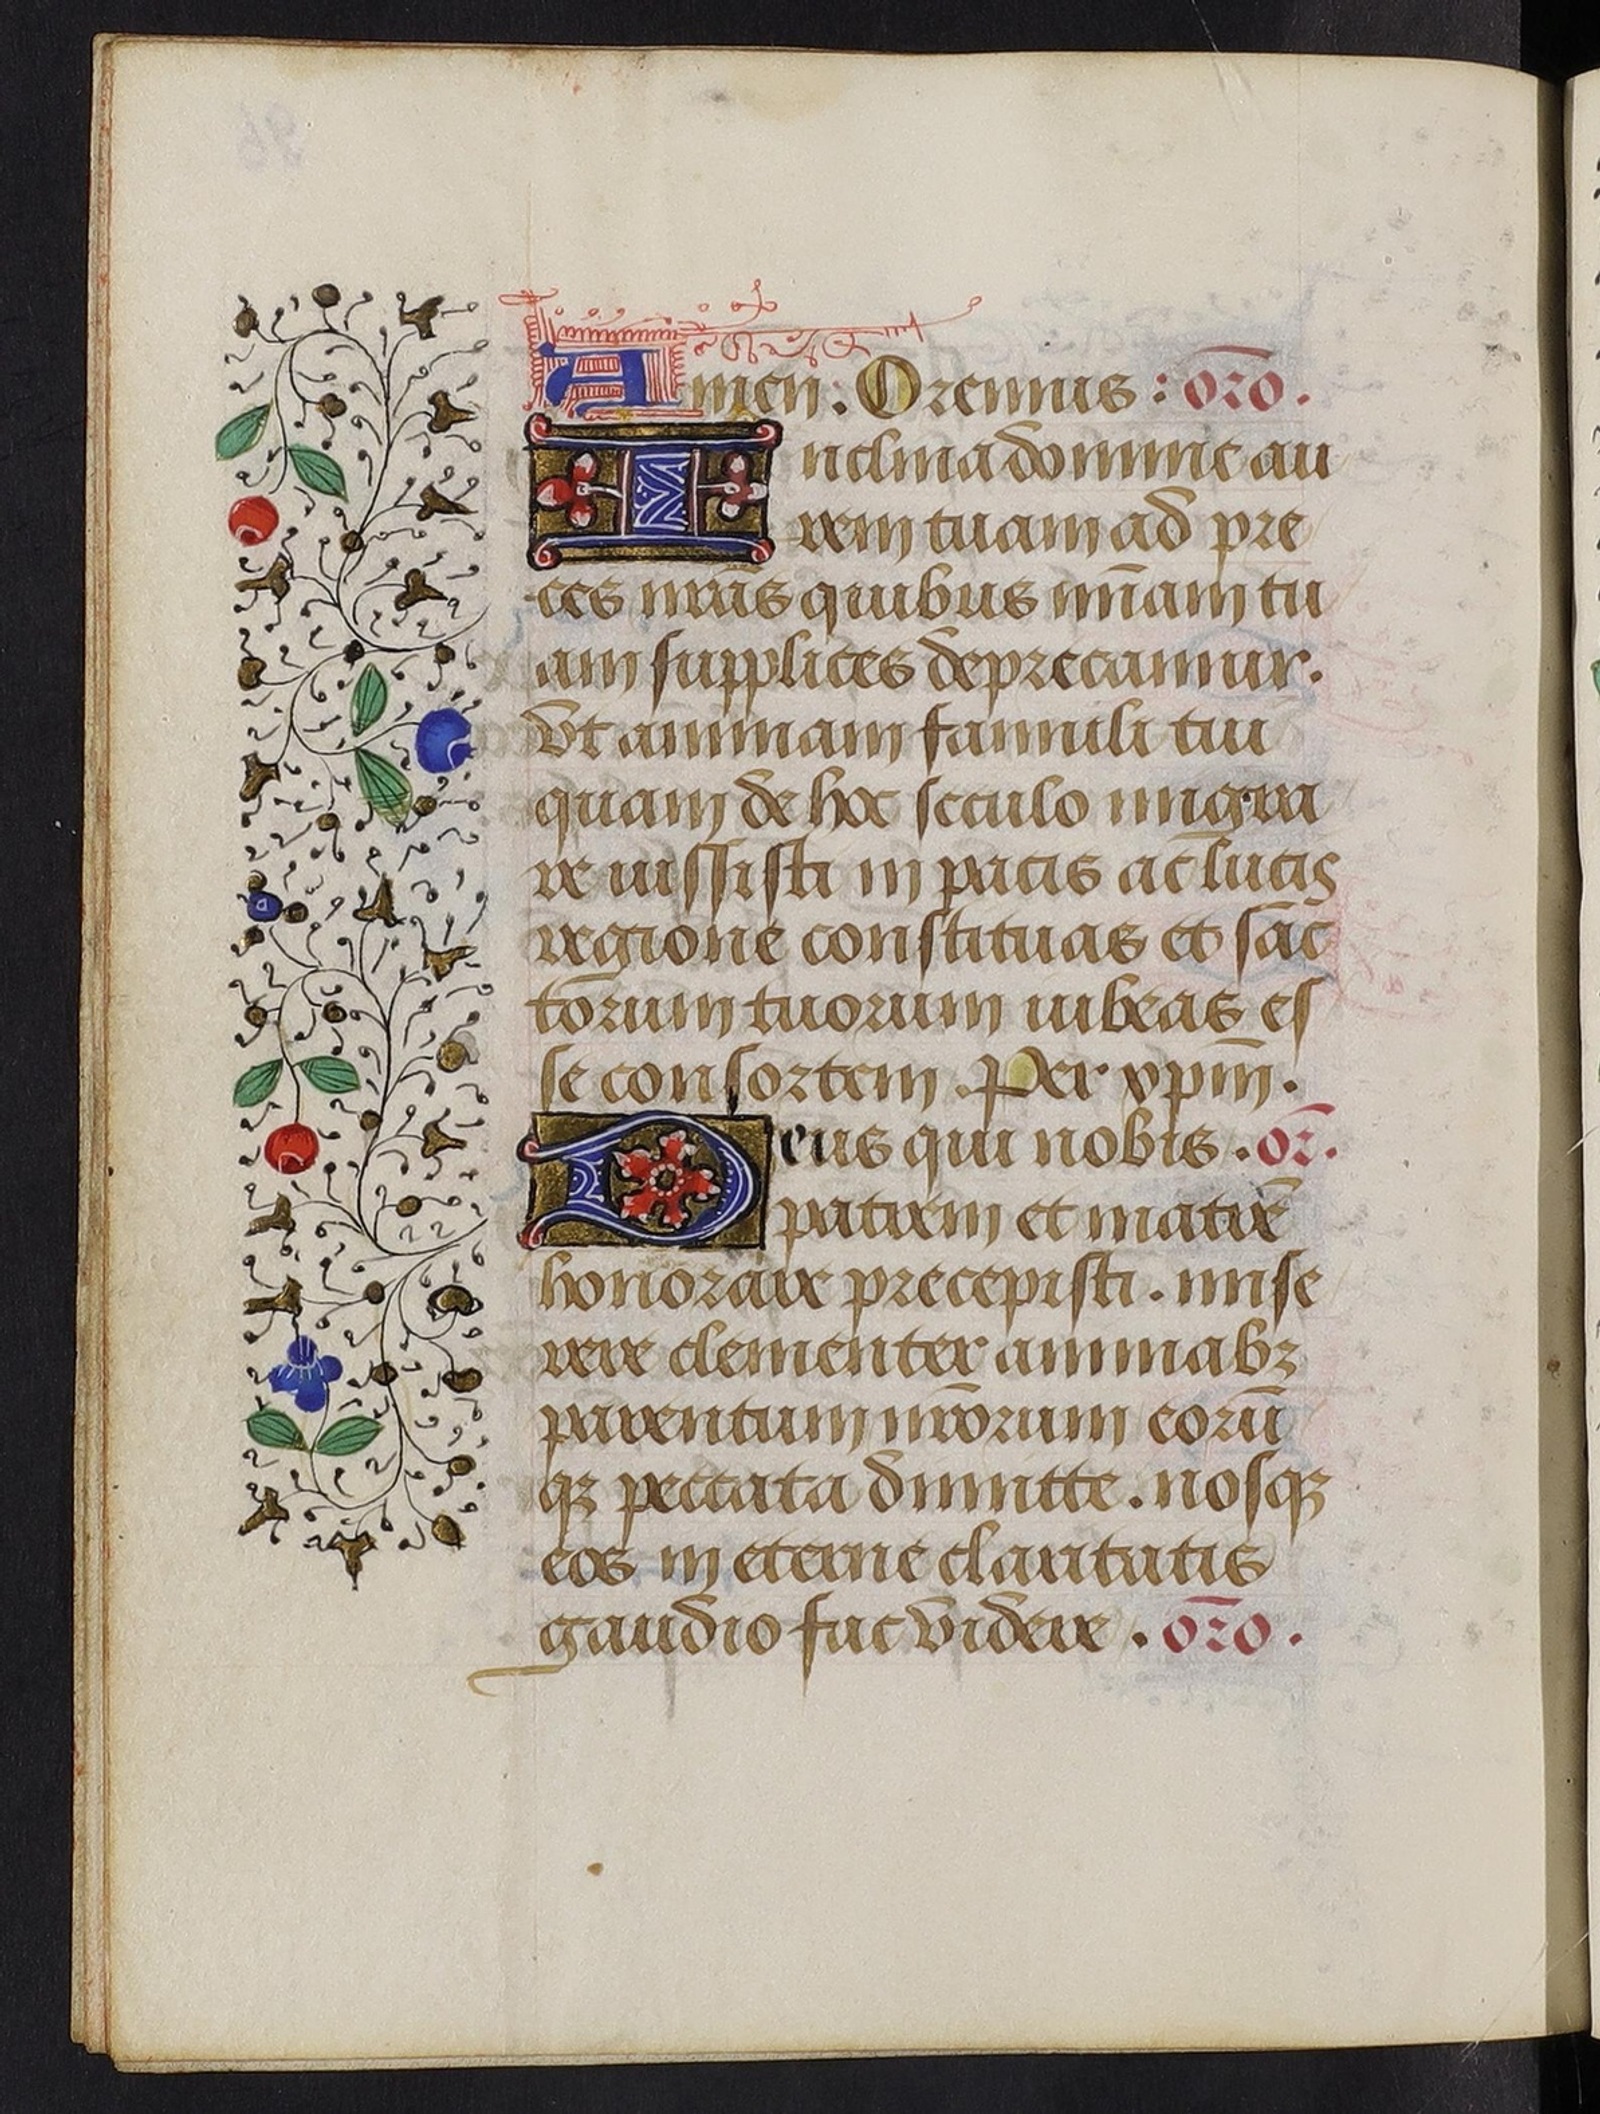 Amen. Oremus: oro.
Inclina domine au
rem tuam ad pre
ces nr̄as quibus mīam tu
am supplices deprecamur.
Vt animam famuli tui
quam de hoc seculo migra
re iussisti in pacis ac lucis
regione constituas et sāc
torum tuorum iubeas es
se consortem. Per xpm̄.
Deus qui nobis. or̄.
patrem et matrē
honorare precepisti. mise
rere clementer animabꝫ
parentum nr̄orum eorū
qꝫ peccata dimitte. nosqꝫ
eos in eterne claritatis
gaudio fac videre. oro.